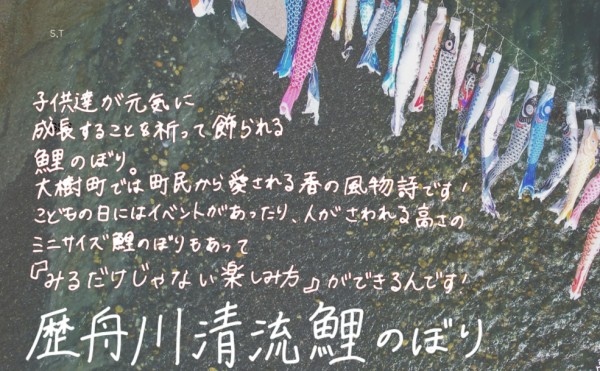 S,T
子供達が元気に
成長することを祈って飾られる
鯉のぼり。
大樹町では町民から愛される春の風物詩です!
こどもの日にはイベントがあったり、人がさわれる高さの
ミニサイズ鯉のぼりもあって
『みるだけじゃない楽しみ方』ができるんです!
歴舟川清流鯉のぼり